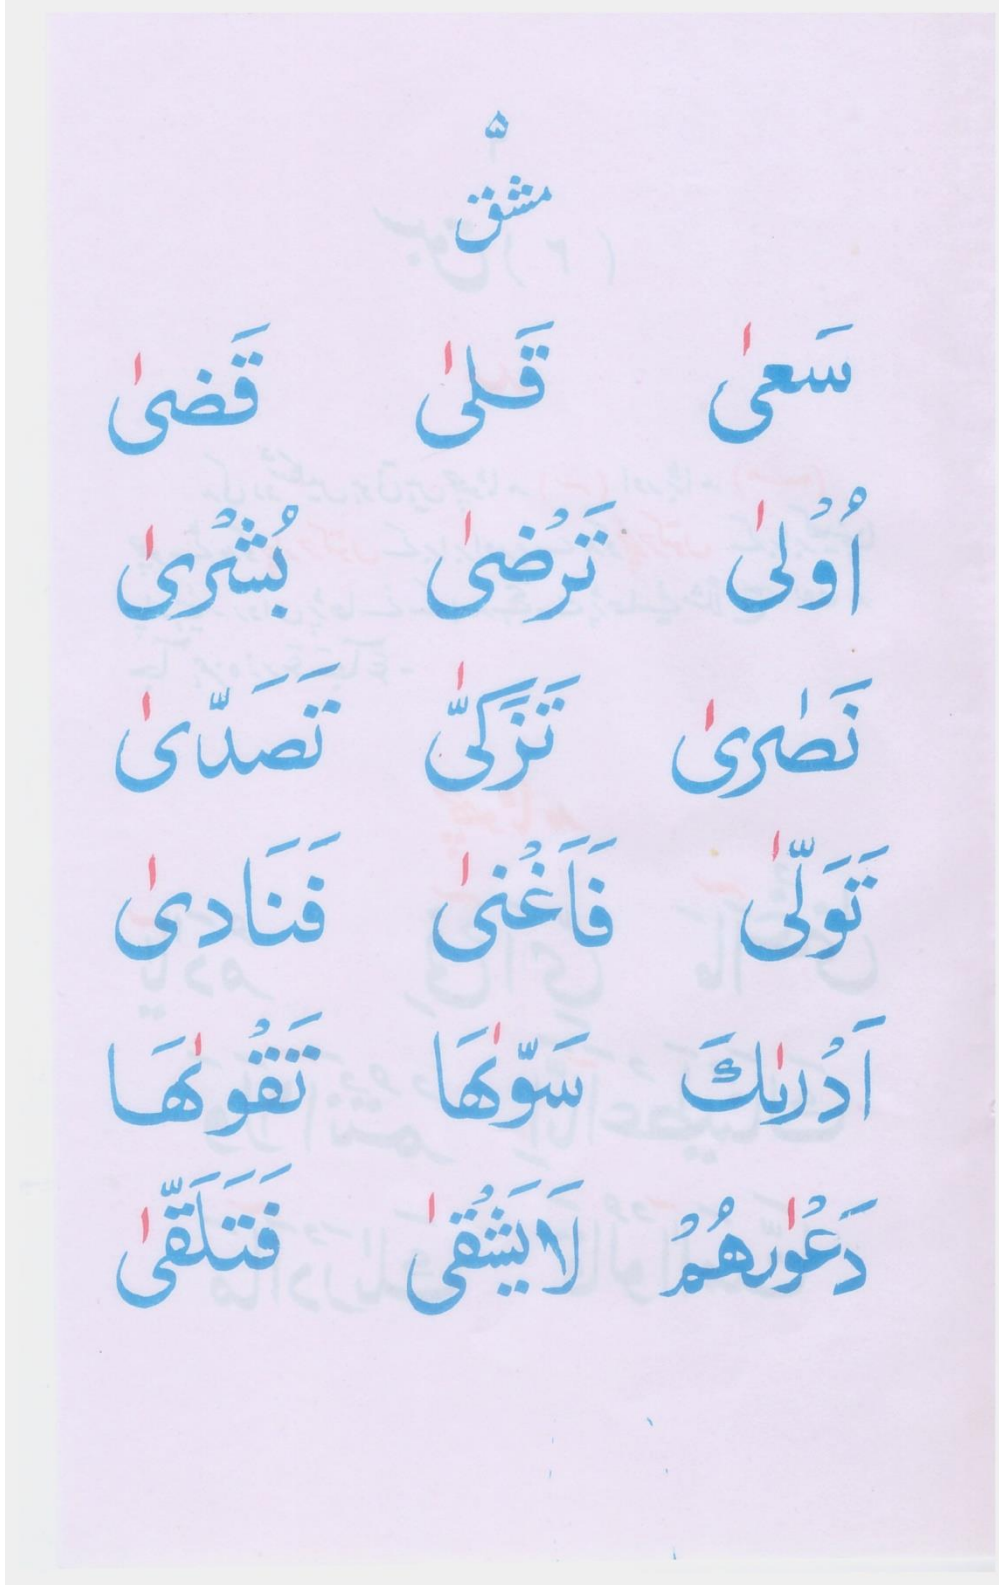 ۵
مشق
سَعىٰ قَلىٰ قَضىٰ
اُوْلىٰ تَرْضىٰ بُشْرىٰ
نَصٰرىٰ تَزَكىّٰ تَصَدّىٰ
تَوَلّىٰ فَاَغْنىٰ فَنَادىٰ
اَدْرٰىكَ سَوّٰىهَا تَقْوٰىهَا
دَعْوٰىهُمْ لَا يَشْقىٰ فَتَلَقّىٰ